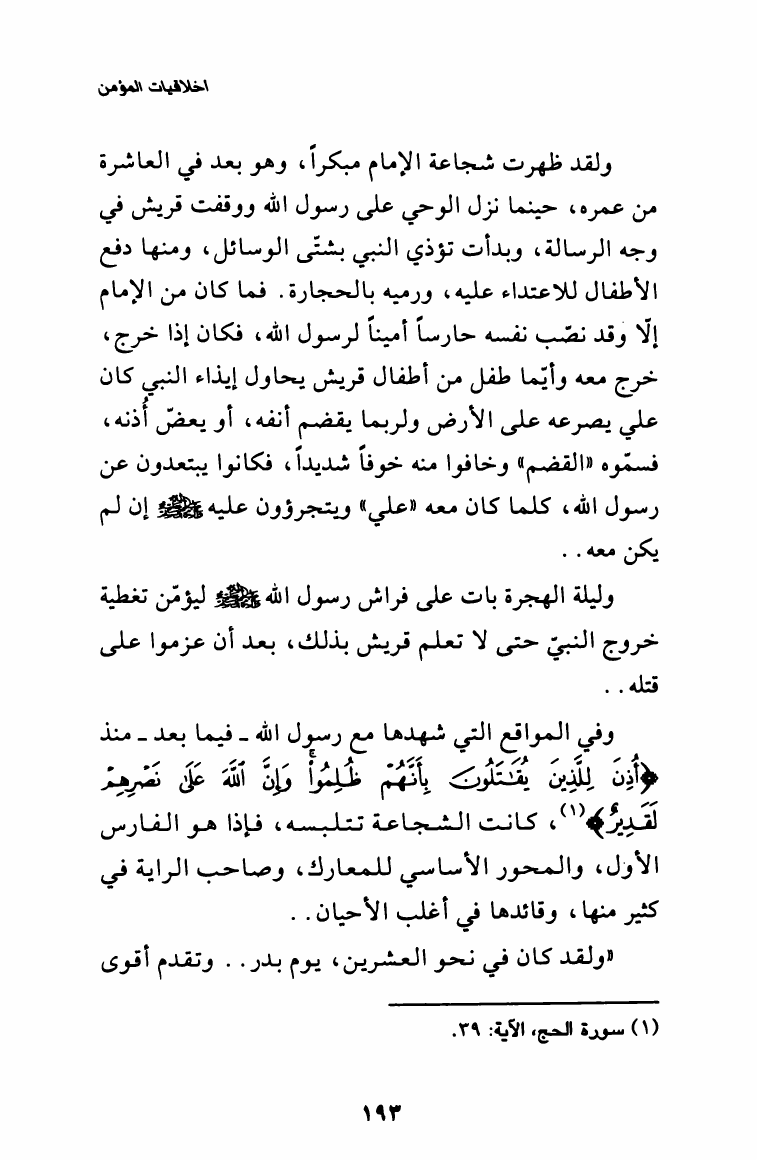 اخلاقيات المؤمن
ولقد ظهرت شجاعة الإمام مبكراً، وهو بعد في العاشرة
من عمره، حينما نزل الوحي على رسول الله ووقفت قريش في
وجه الرسالة، وبدأت تؤذي النبي بشتّى الوسائل، ومنها دفع
الأطفال للاعتداء عليه، ورميه بالحجارة. فما كان من الإمام
إلّا وقد نصّب نفسه حارساً أميناً لرسول الله، فكان إذا خرج،
خرج معه وأيّما طفل من أطفال قريش يحاول إيذاء النبي كان
علي يصرعه على الأرض ولربما يقضم أنفه، أو يعضّ أُذنه،
فسمّوه «القضم» وخافوا منه خوفاً شديداً، فكانوا يبتعدون عن
رسول الله، كلما كان معه «علي» ويتجرؤون عليه ﷺ إن لم
يكن معه..
وليلة الهجرة بات على فراش رسول الله ﷺ ليؤمّن تغطية
خروج النبيّ حتى لا تعلم قريش بذلك، بعد أن عزموا على
قتله..
وفي المواقع التي شهدها مع رسول الله - فيما بعد - منذ
﴿أُذِنَ لِلَّذِينَ يُقَٰتَلُونَ بِأَنَّهُمْ ظُلِمُوا۟ۚ وَإِنَّ ٱللَّهَ عَلَىٰ نَصْرِهِمْ
لَقَدِيرٌ﴾(١)، كانت الشجاعة تتلبسه، فإذا هو الفارس
الأول، والمحور الأساسي للمعارك، وصاحب الراية في
كثير منها، وقائدها في أغلب الأحيان..
«ولقد كان في نحو العشرين، يوم بدر.. وتقدم أقوى
(١) سورة الحج، الآية: ٣٩.
١٩٣